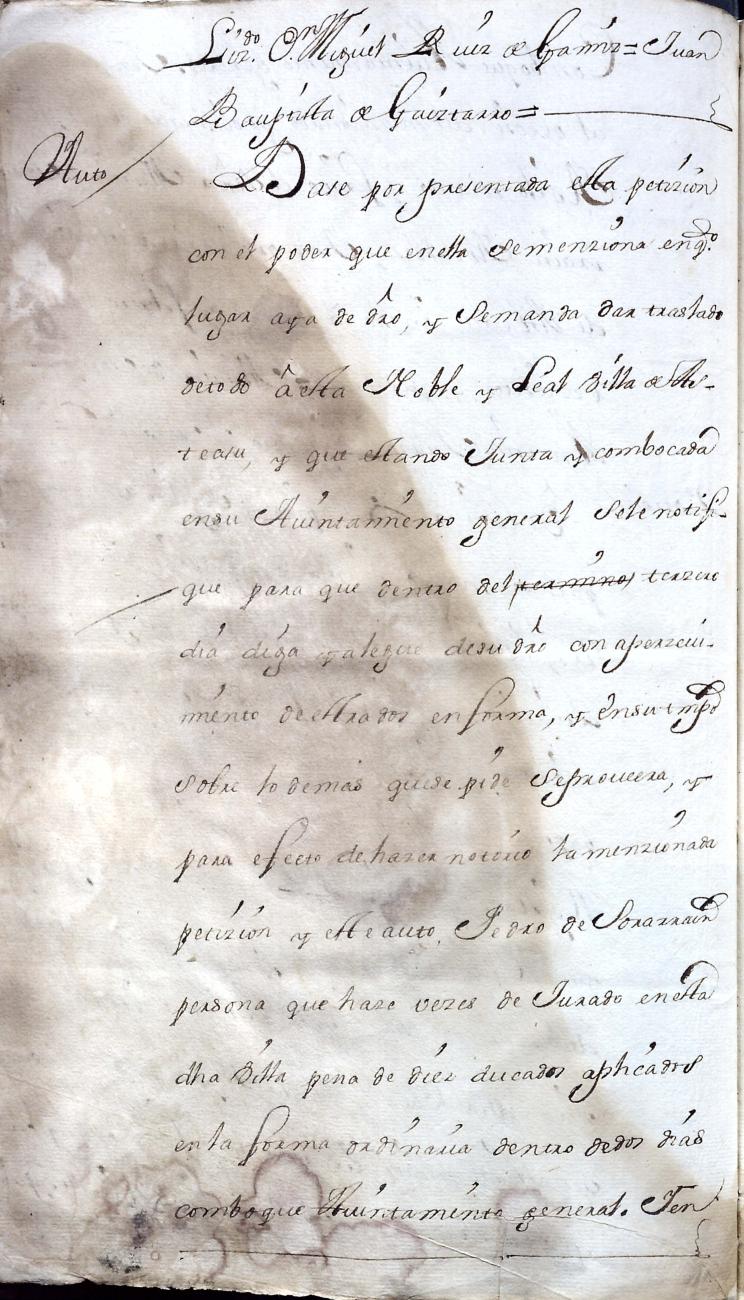 Lizdo. Dn Miguel Ruiz de Gamiz = Juan
Bauptista de Gaiztarro =
Auto
Dase por presentada esta petizion
con el poder que enella semenziona enqto.
lugar aya de dro, y semanda dar traslado
detodo â esta Noble y Leal Villa de As-
teasu, y que estando Junta y combocada
ensu Auintamiento general sele notifi-
que para que dentro del termino terzero
dia diga y alegue desu dro con aperzeui-
miento de estrados en forma, y ensu tmpo
sobre lo demas quese pide seproueera, y
para efecto de hazer notorio la menzionada
petizion y este auto, Pedro de Sorarrain
persona que haze vezes de Jurado enesta
dha Villa pena de diez ducados aplicados
en la forma ordinaria dentro dedos dias
comboque Auintamiento general. Ten